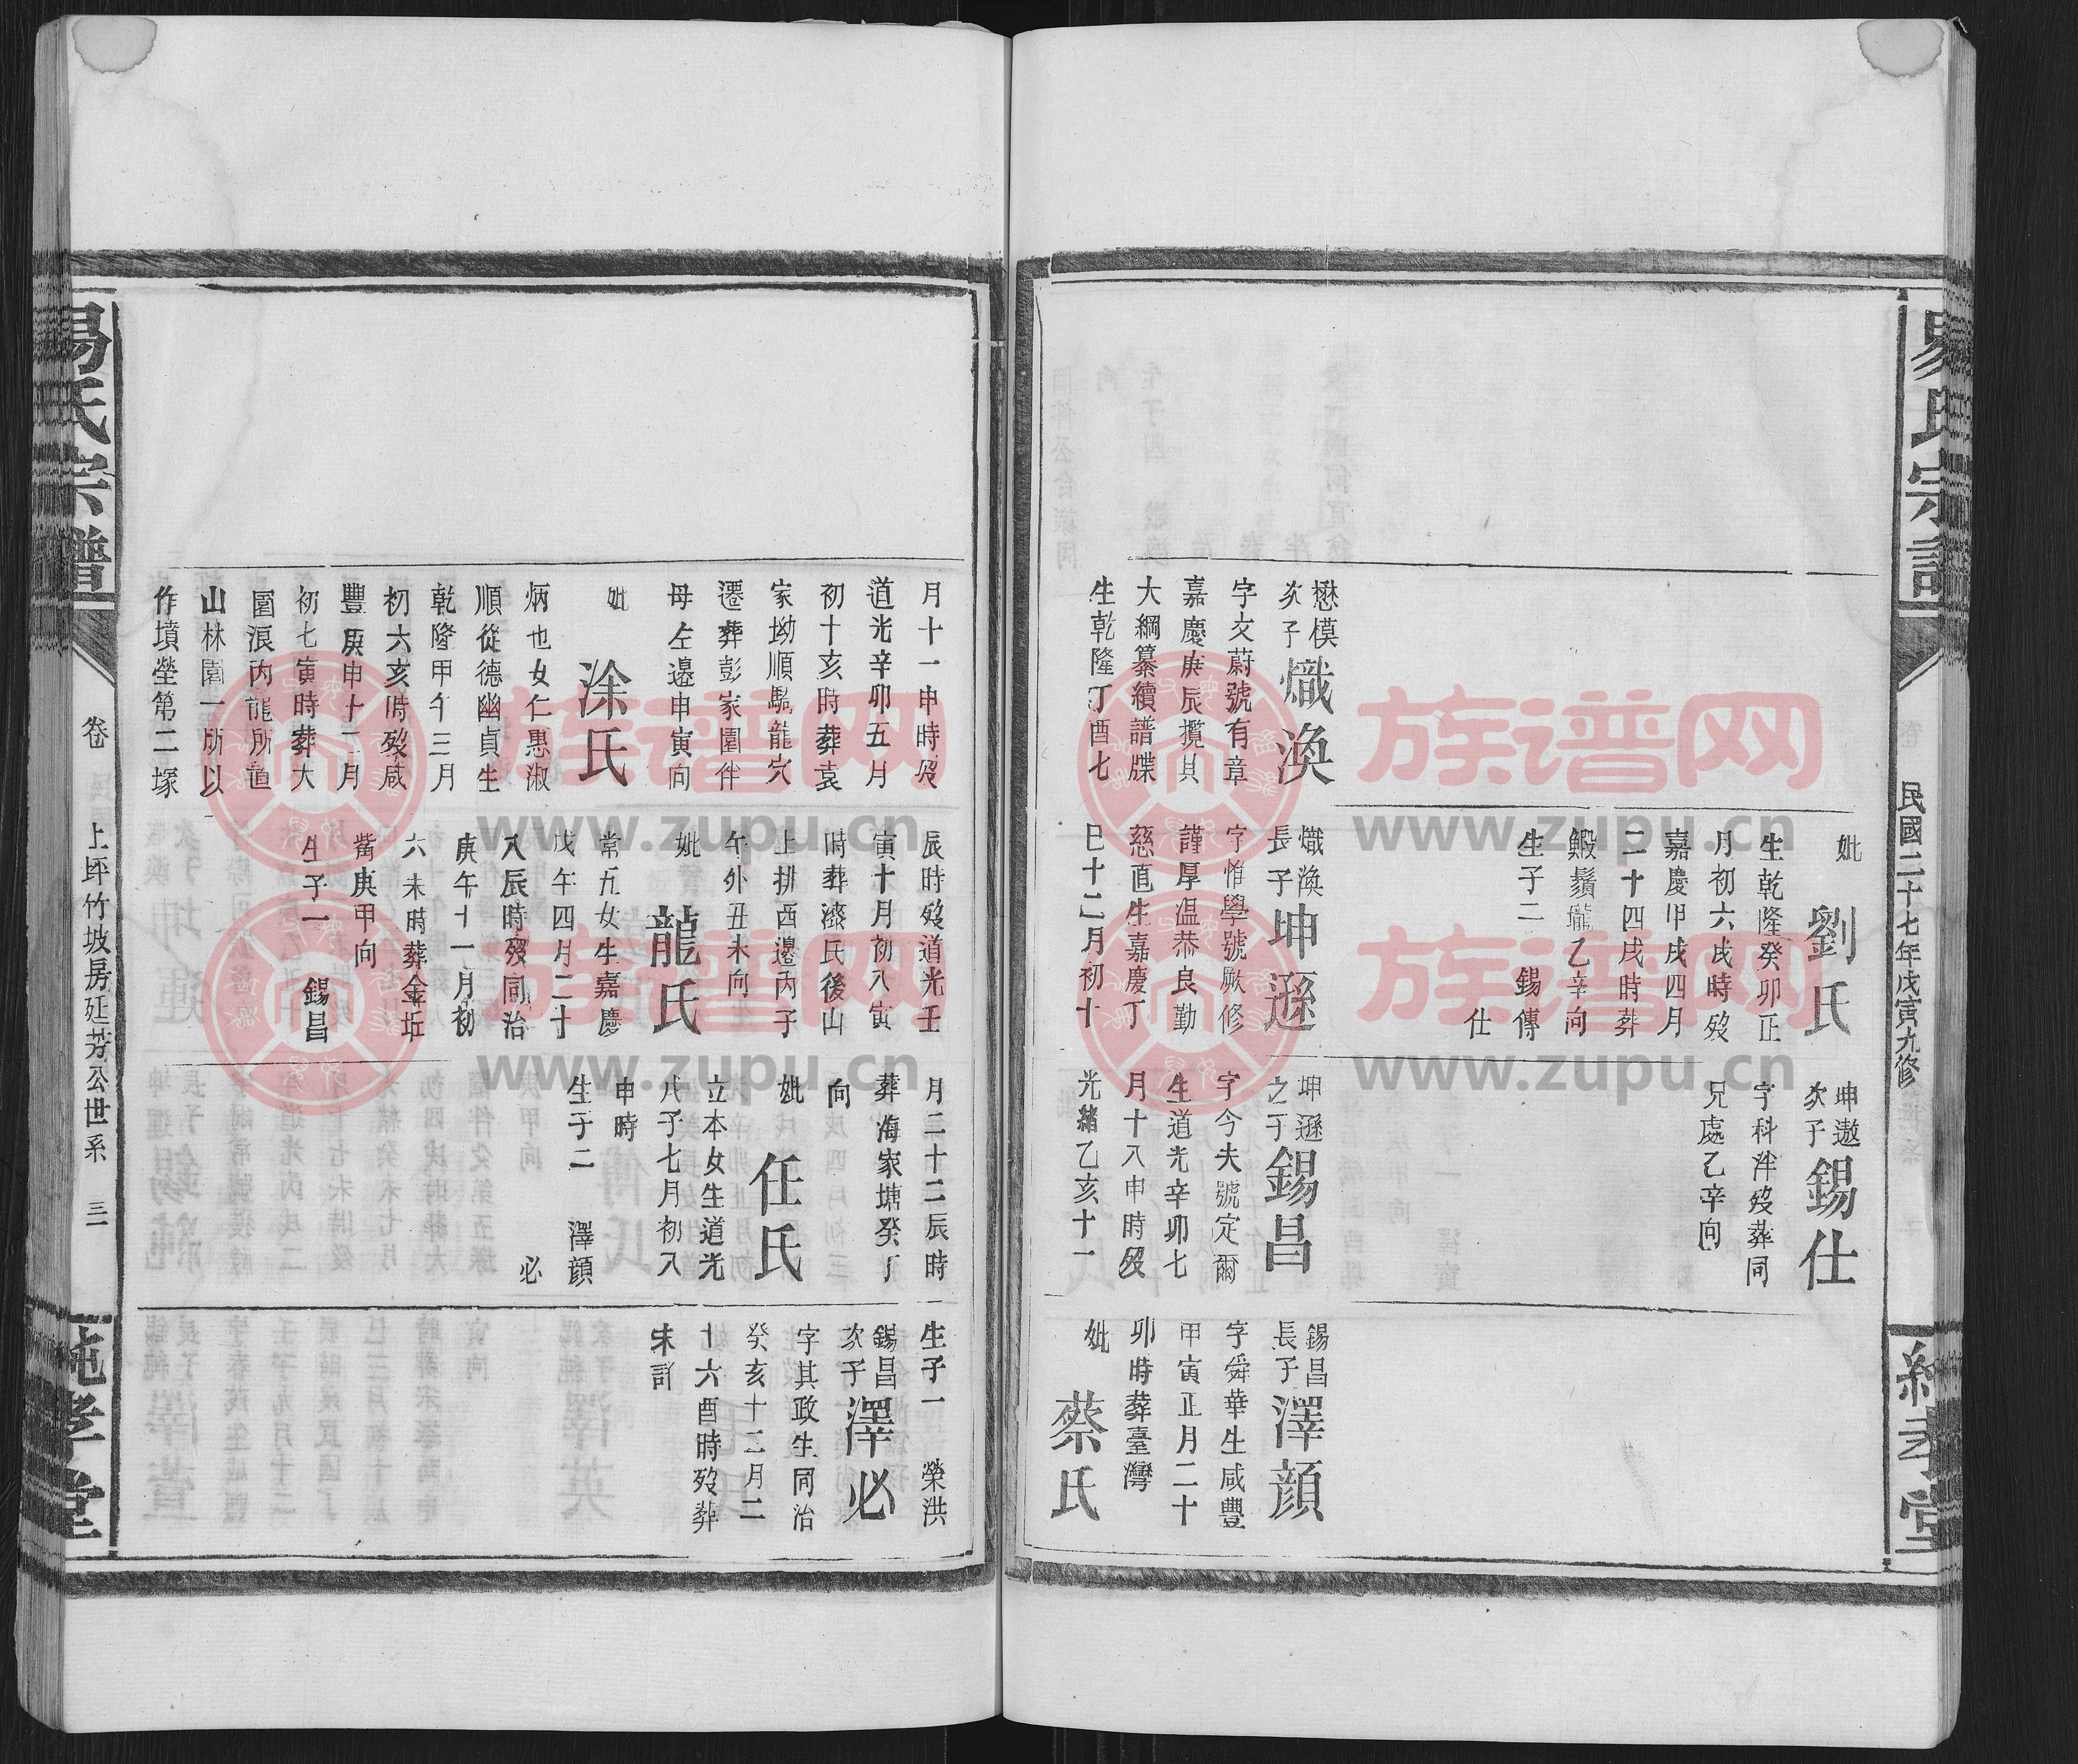 易氏宗譜
民國二十七年戊寅九修
純孝堂
懋模
次子
熾渙
字文蔚號有章
嘉慶庚辰攬其
大綱纂續譜牒
生乾隆丁酉七
妣
劉氏
生乾隆癸卯正
月初六戌時歿
嘉慶甲戌四月
二十四戌時葬
鰕鬚壠乙辛向
生子二 錫傳
仕
熾渙
長子
坤遜
字惟學號厥修
謹厚溫恭良勤
慈直生嘉慶丁
巳十二月初十
坤遨
次子
錫仕
字科泮歿葬同
兄處乙辛向
坤遜
之子
錫昌
字今夫號定爾
生道光辛卯七
月十八申時歿
光緒乙亥十一
錫昌
長子
澤顔
字舜華生咸豐
甲寅正月二十
卯時葬臺灣
妣
蔡氏
月十一申時歿
道光辛卯五月
初十亥時葬袁
家坳順騎龍穴
遷葬彭家園伴
母左邉申寅向
妣
涂氏
炳也女仁惠淑
順從德幽貞生
乾隆甲午三月
初六亥時歿咸
豐庚申十二月
初七寅時葬大
園浪內龍所直
山林園一所以
作墳塋第二塚
辰時歿道光壬
寅十月初八寅
時葬漆氏後山
上排西邉丙子
午外丑未向
妣
龍氏
常五女生嘉慶
戊午四月二十
八辰時歿同治
庚午十一月初
六未時葬金坵
觜庚甲向
生子一 錫昌
月二十二辰時
葬海家塘癸丁
向
妣
任氏
立本女生道光
戊子七月初八
申時
生子二 澤顔
必
生子一 榮洪
錫昌
次子
澤必
字其政生同治
癸亥十二月二
十六酉時歿葬
未詳
易氏宗譜
卷
上坪竹坡房廷芳公世系
三
純孝堂
族谱网
www.zupu.cn
族谱网
www.zupu.cn
族谱网
www.zupu.cn
族谱网
www.zupu.cn